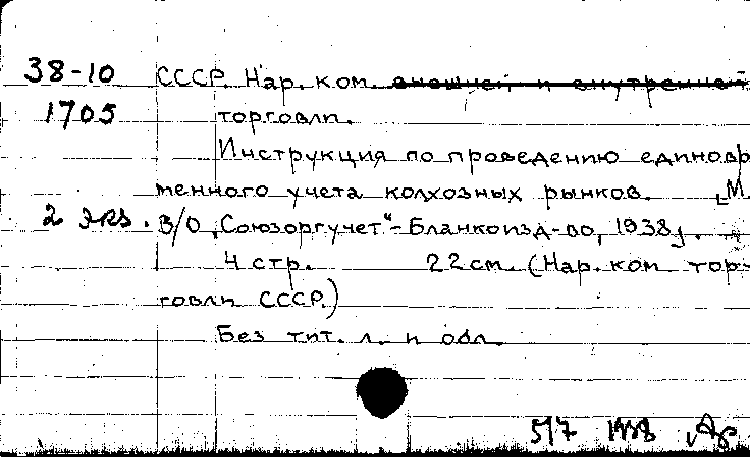 38-10 СССР. Нар. ком. внешней и внутренней
1705 торговли.
Инструкция по проведению единовр
менного учета колхозных рынков. [М.
2 экз. В/О „Союзоргучет"-Бланкоизд-во, 1938].
4 стр. 22 см. (Нар. ком тор-
говли СССР.)
Без тит. л. и обл.
5/7 1938